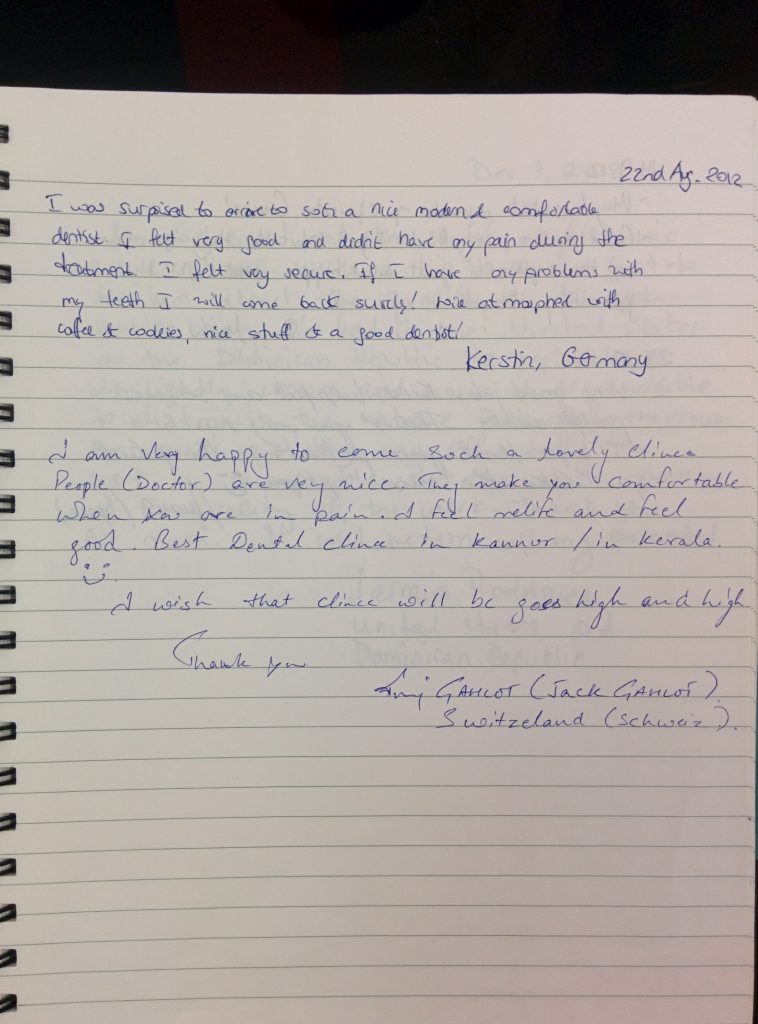 22nd Aug. 2012
I was surprised to arrive to such a nice modern & comfortable
dentist I felt very good and didn't have any pain during the
treatment. I felt very secure. If I have any problems with
my teeth I will come back surely! Nice atmosphed with
coffee & cookies, nice stuff & a good dentist!
Kerstin, Germany
I am very happy to come such a lovely clince
People (Doctor) are very nice. They make you comfortable
when you are in pain. I feel relife and feel
good. Best Dental clince in kannur / in kerala.
I wish that clince will be goes high and high
Thank you
GAHLOT (Jack GAHLOT).
Switzeland (Schweiz).